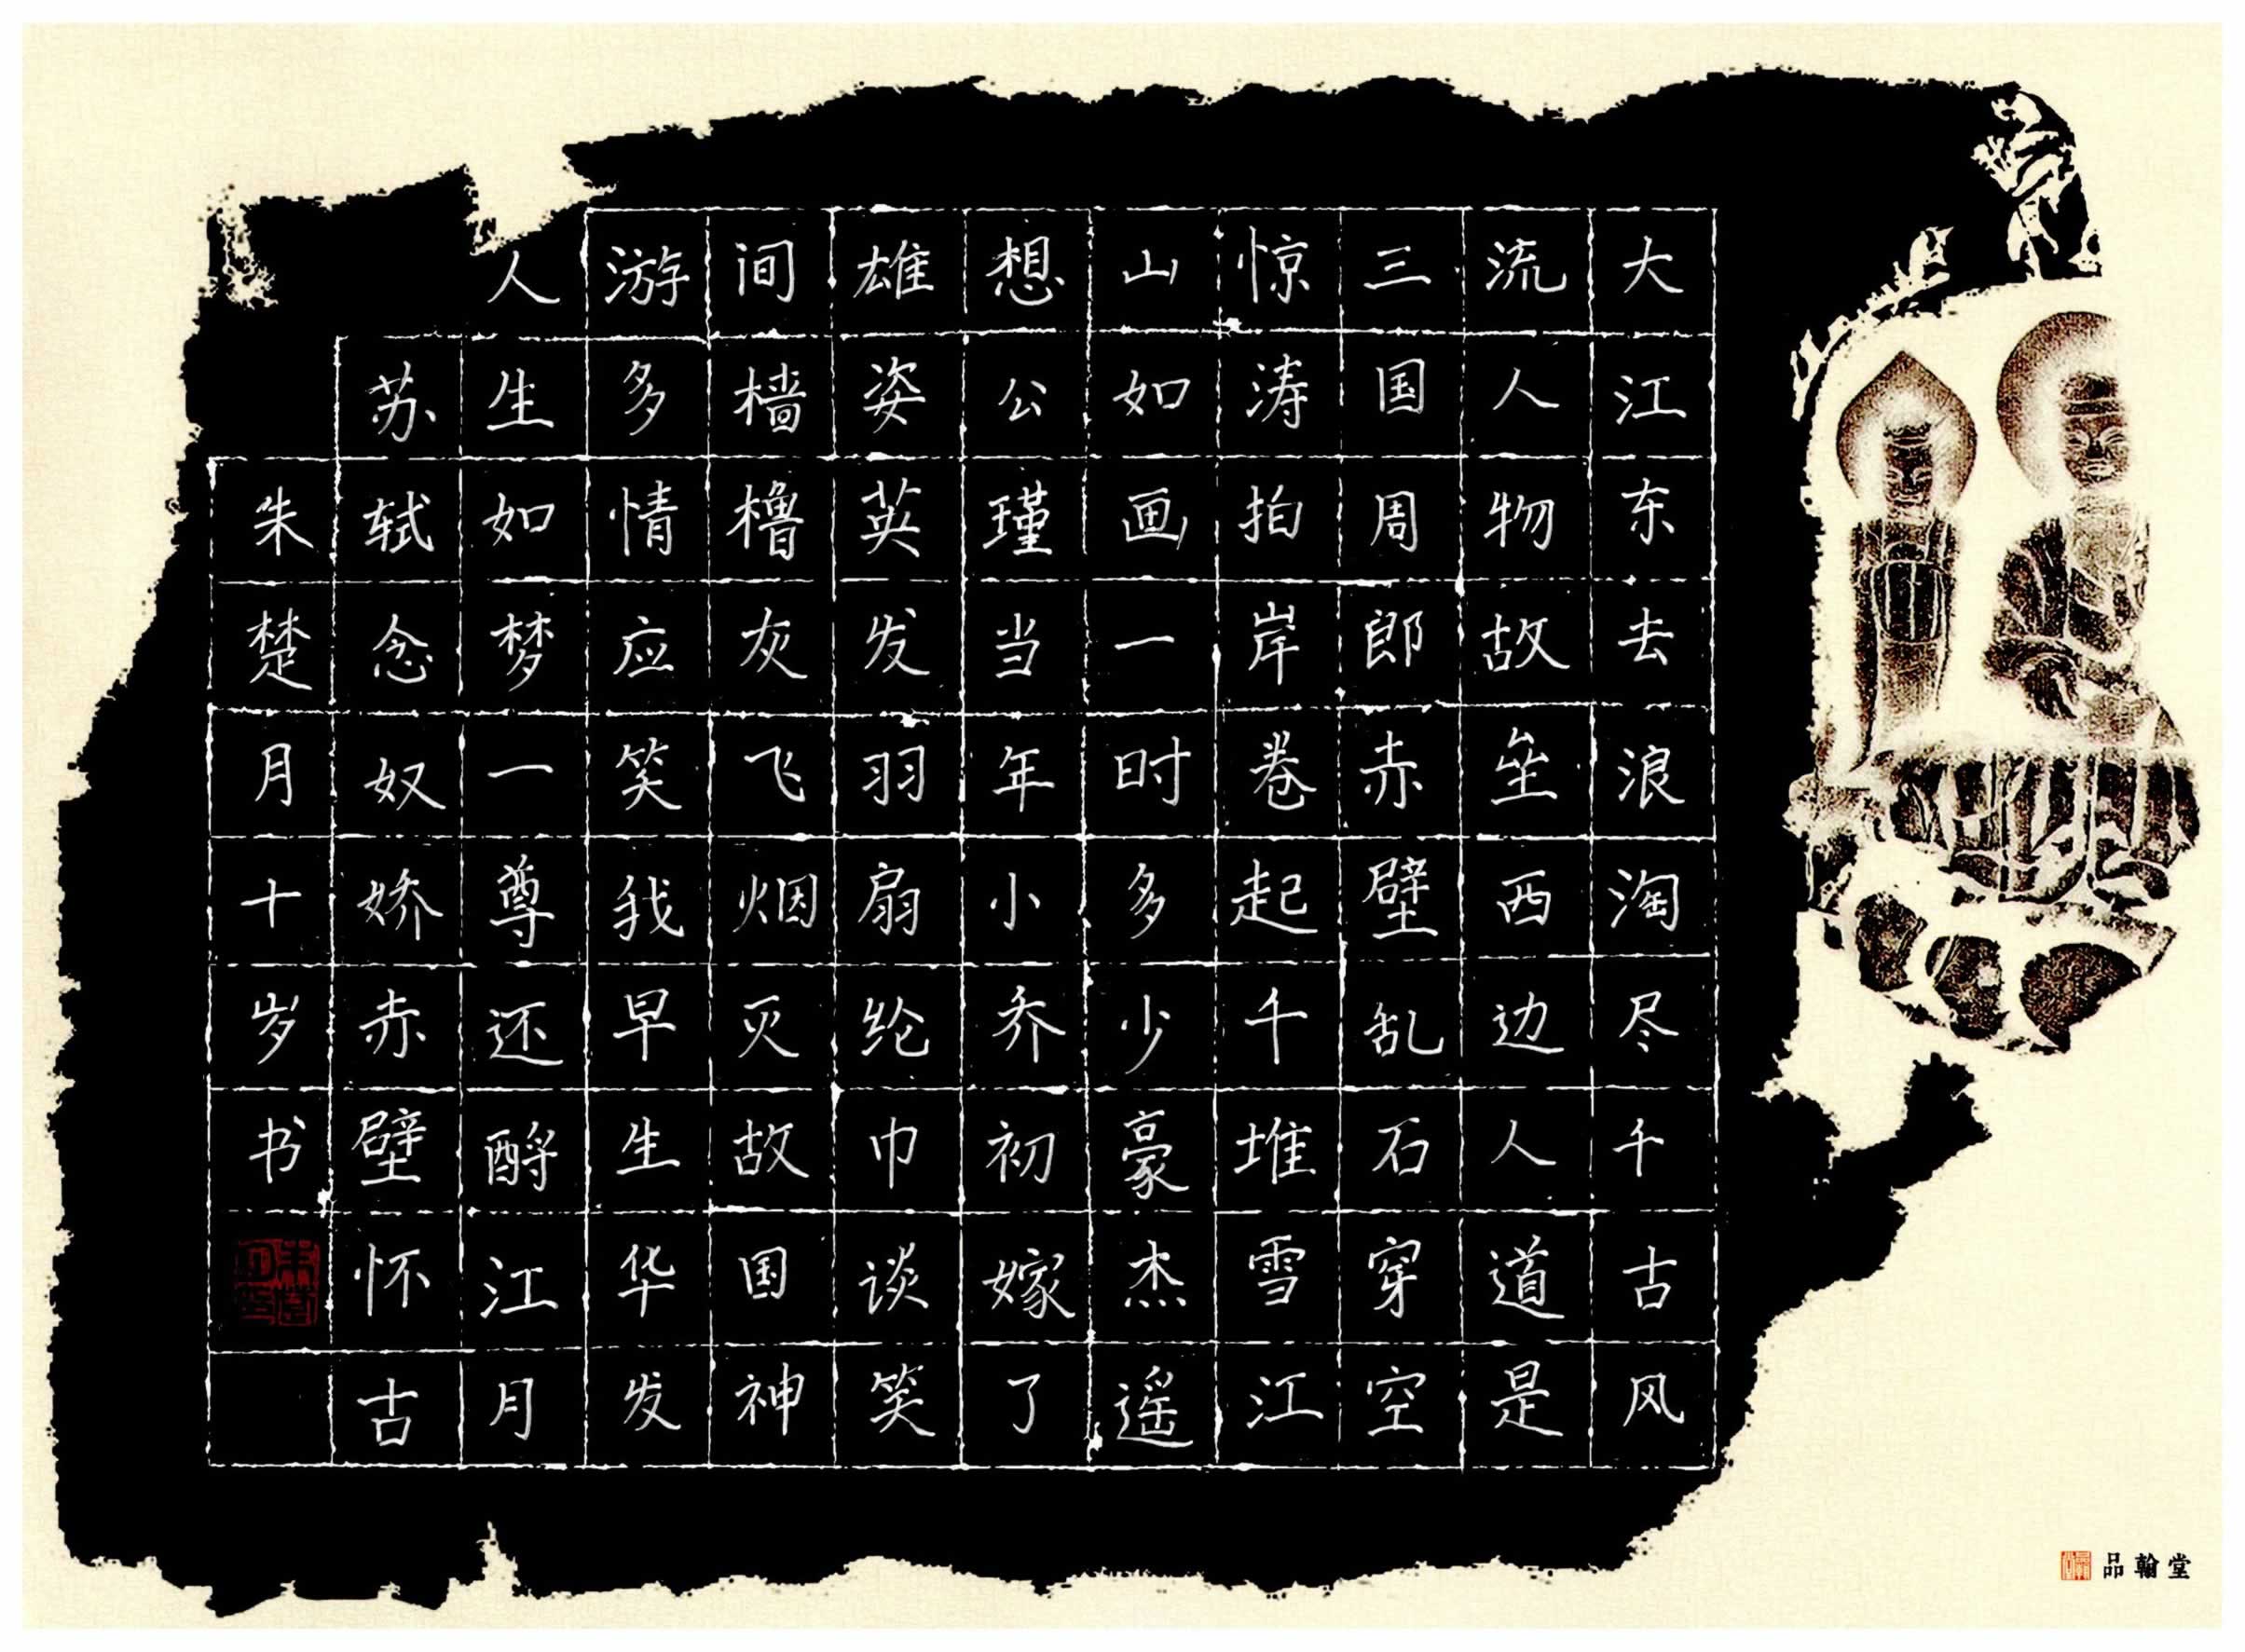 大江东去浪淘尽千古风
流人物故垒西边人道是
三国周郎赤壁乱石穿空
惊涛拍岸卷起千堆雪江
山如画一时多少豪杰遥
想公瑾当年小乔初嫁了
雄姿英发羽扇纶巾谈笑
间樯橹灰飞烟灭故国神
游多情应笑我早生华发
人生如梦一尊还酹江月
苏轼念奴娇赤壁怀古
朱楚月十岁书
品翰堂